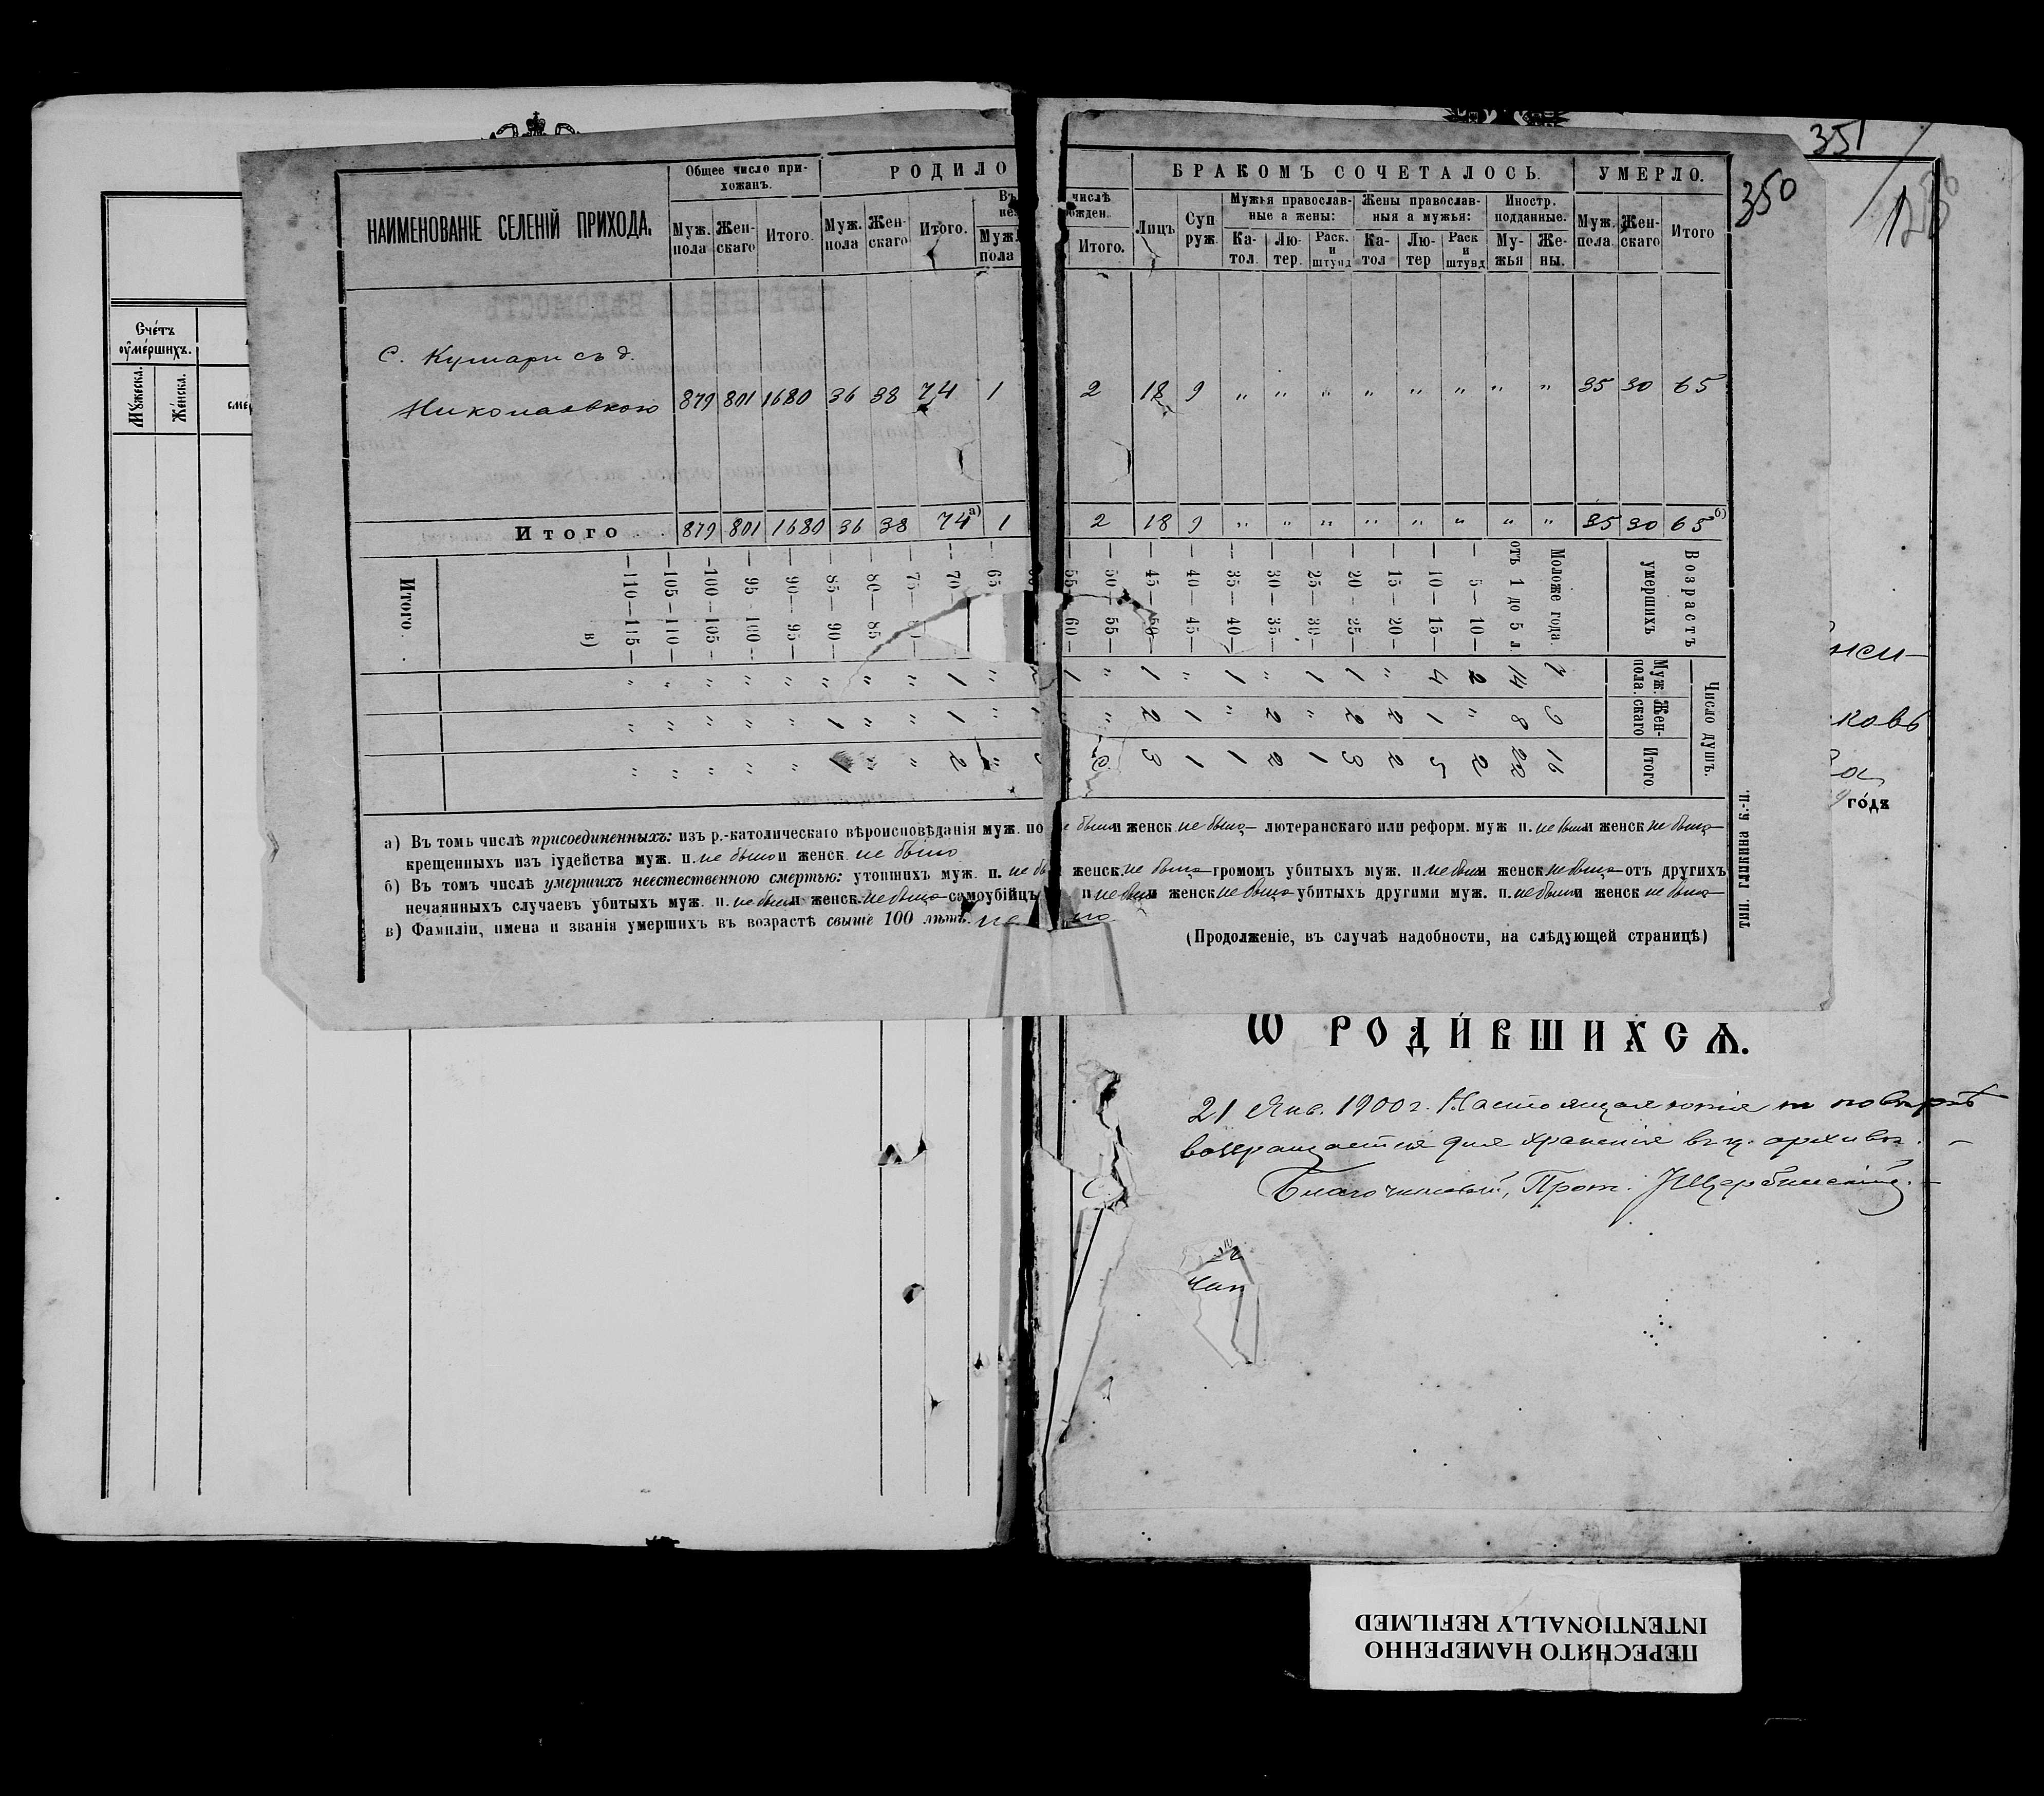 351
350
Счéтъ
оумéршихъ.
Мꙋжеска.
Женска.
НАИМЕНОВАНІЕ СЕЛЕНІЙ ПРИХОДА.
Общее число при-
хожанъ.
Муж. пола
Жен- скаго
Итого.
РОДИЛО
Муж. пола
Жен- скаго
Итого.
Муж. пола
числѣ
Итого.
БРАКОМЪ СОЧЕТАЛОСЬ.
Лицъ
Суп руж.
Мужья православ-
ные а жены:
Ка- тол.
Лю- тер.
Раск. и штунд
Жены православ-
ныя а мужья:
Ка- тол
Лю- тер
Раск и штунд
Иностр.
подданные.
Му- жья
Же- ны.
УМЕРЛО.
Муж. пола.
Жен- скаго
Итого
С. Кумари съ д.
Николаевкою 879 801 1680 36 38 74 1 2 18 9 „ „ „ „ „ „ „ „ 35 30 65
Итого 879 801 1680 36 38 74 а) 1 2 18 9 „ „ „ „ „ „ „ „ 35 30 65 б)
Возрастъ умершихъ
Число душъ.
Муж. пола.
Жен- скаго
Итого
Моложе года. 7 9 16
отъ 1 до 5 л 14 8 22
5—10— 2 „ 2
10—15— 4 1 5
15—20— „ 2 2
20—25— 1 2 3
25—30— 1 „ 1
30—35— „ 2 2
35—40— 1 „ 1
40—45— „ 1 1
45—50— 1 2 3
50—55— „ „
55—60— 1
65—
70— 1 1 2
75— „ „ „
80—85 „ „ „
85—90— „ 1 1
90—95— „ „ „
95—100— „ „ „
100—105— „ „ „
105—110— „ „ „
110—115— „ „ „
в)
Итого.
а) Въ томъ числѣ присоединенныхъ: изъ р.-католическаго вѣроисповѣданія муж. по было и женск. не было — лютеранскаго или реформ. муж п. не было и женск не было —
крещенныхъ изъ іудейства муж. п. не было и женск. не было
б) Въ томъ числѣ умершихъ неестественною смертью: утопшихъ муж. п. не женск. не было — громомъ убитыхъ муж. п не было и женск не было — отъ другихъ
нечаянныхъ случаевъ убитыхъ муж. п. не было и женск. не было — самоубійцъ п не было и женск не было убитыхъ другими муж. п. не было и женск не было —
в) Фамиліи, имена и званія умершихъ въ возрастѣ свыше 100 лѣтъ. не
(Продолженіе, въ случаѣ надобности, на слѣдующей страницѣ)
тип. глікина к.-п.
годъ
Ѡ РОДИ́ВШИХСѦ.
21 Янв. 1900 г. Настоящая копія по повѣркѣ
возвращается для храненія въ ц. архивъ. —
Благочинный, Прот. Щербинскій. —
ПЕРЕСНЯТО НАМЕРЕННО
INTENTIONALLY REFILMED